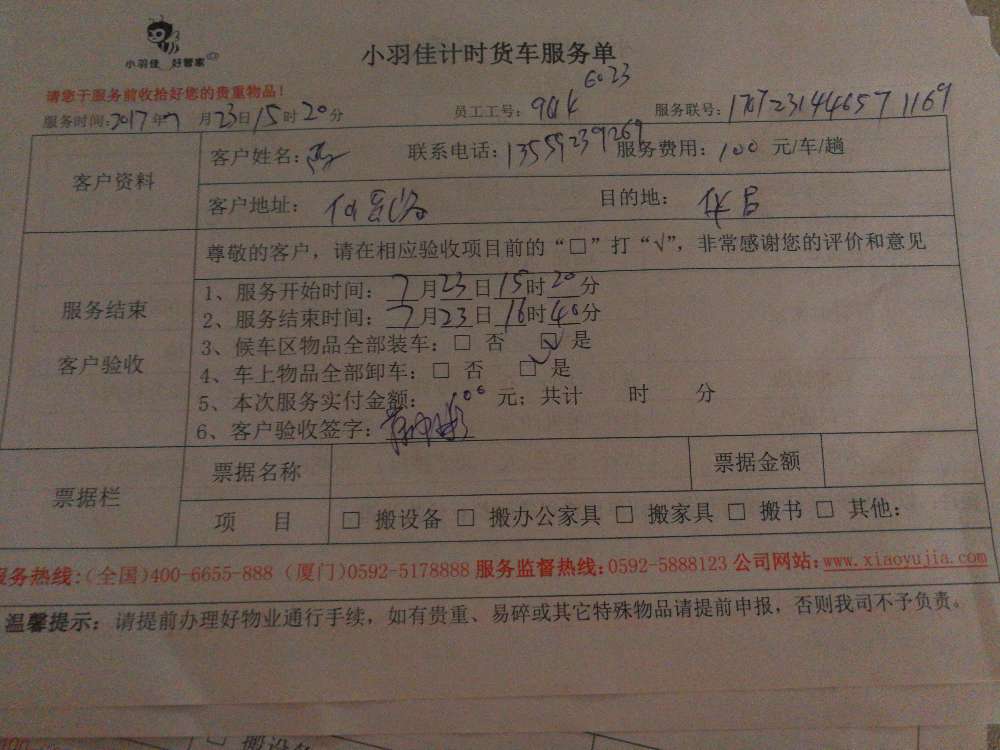 小羽佳 好管家
小羽佳计时货车服务单
请您于服务前收拾好您的贵重物品！
服务时间:2017年7月23日15时20分 员工工号: 6023 服务联号:
客户资料
客户姓名: 联系电话:13559239269 服务费用:100 元/车/趟
客户地址: 目的地:
尊敬的客户，请在相应验收项目前的“□”打“√”，非常感谢您的评价和意见
服务结束
客户验收
1、服务开始时间：7月23日15时20分
2、服务结束时间：7月23日16时40分
3、候车区物品全部装车：□ 否 ☑ 是
4、车上物品全部卸车：□ 否 ☑ 是
5、本次服务实付金额： 元；共计 时 分
6、客户验收签字：
票据栏
票据名称 票据金额
项 目 □ 搬设备 □ 搬办公家具 □ 搬家具 □ 搬书 □ 其他：
服务热线:(全国)400-6655-888 (厦门)0592-5178888 服务监督热线:0592-5888123 公司网站:www.xiaoyujia.com
温馨提示：请提前办理好物业通行手续，如有贵重、易碎或其它特殊物品请提前申报，否则我司不予负责。
□ 搬设备